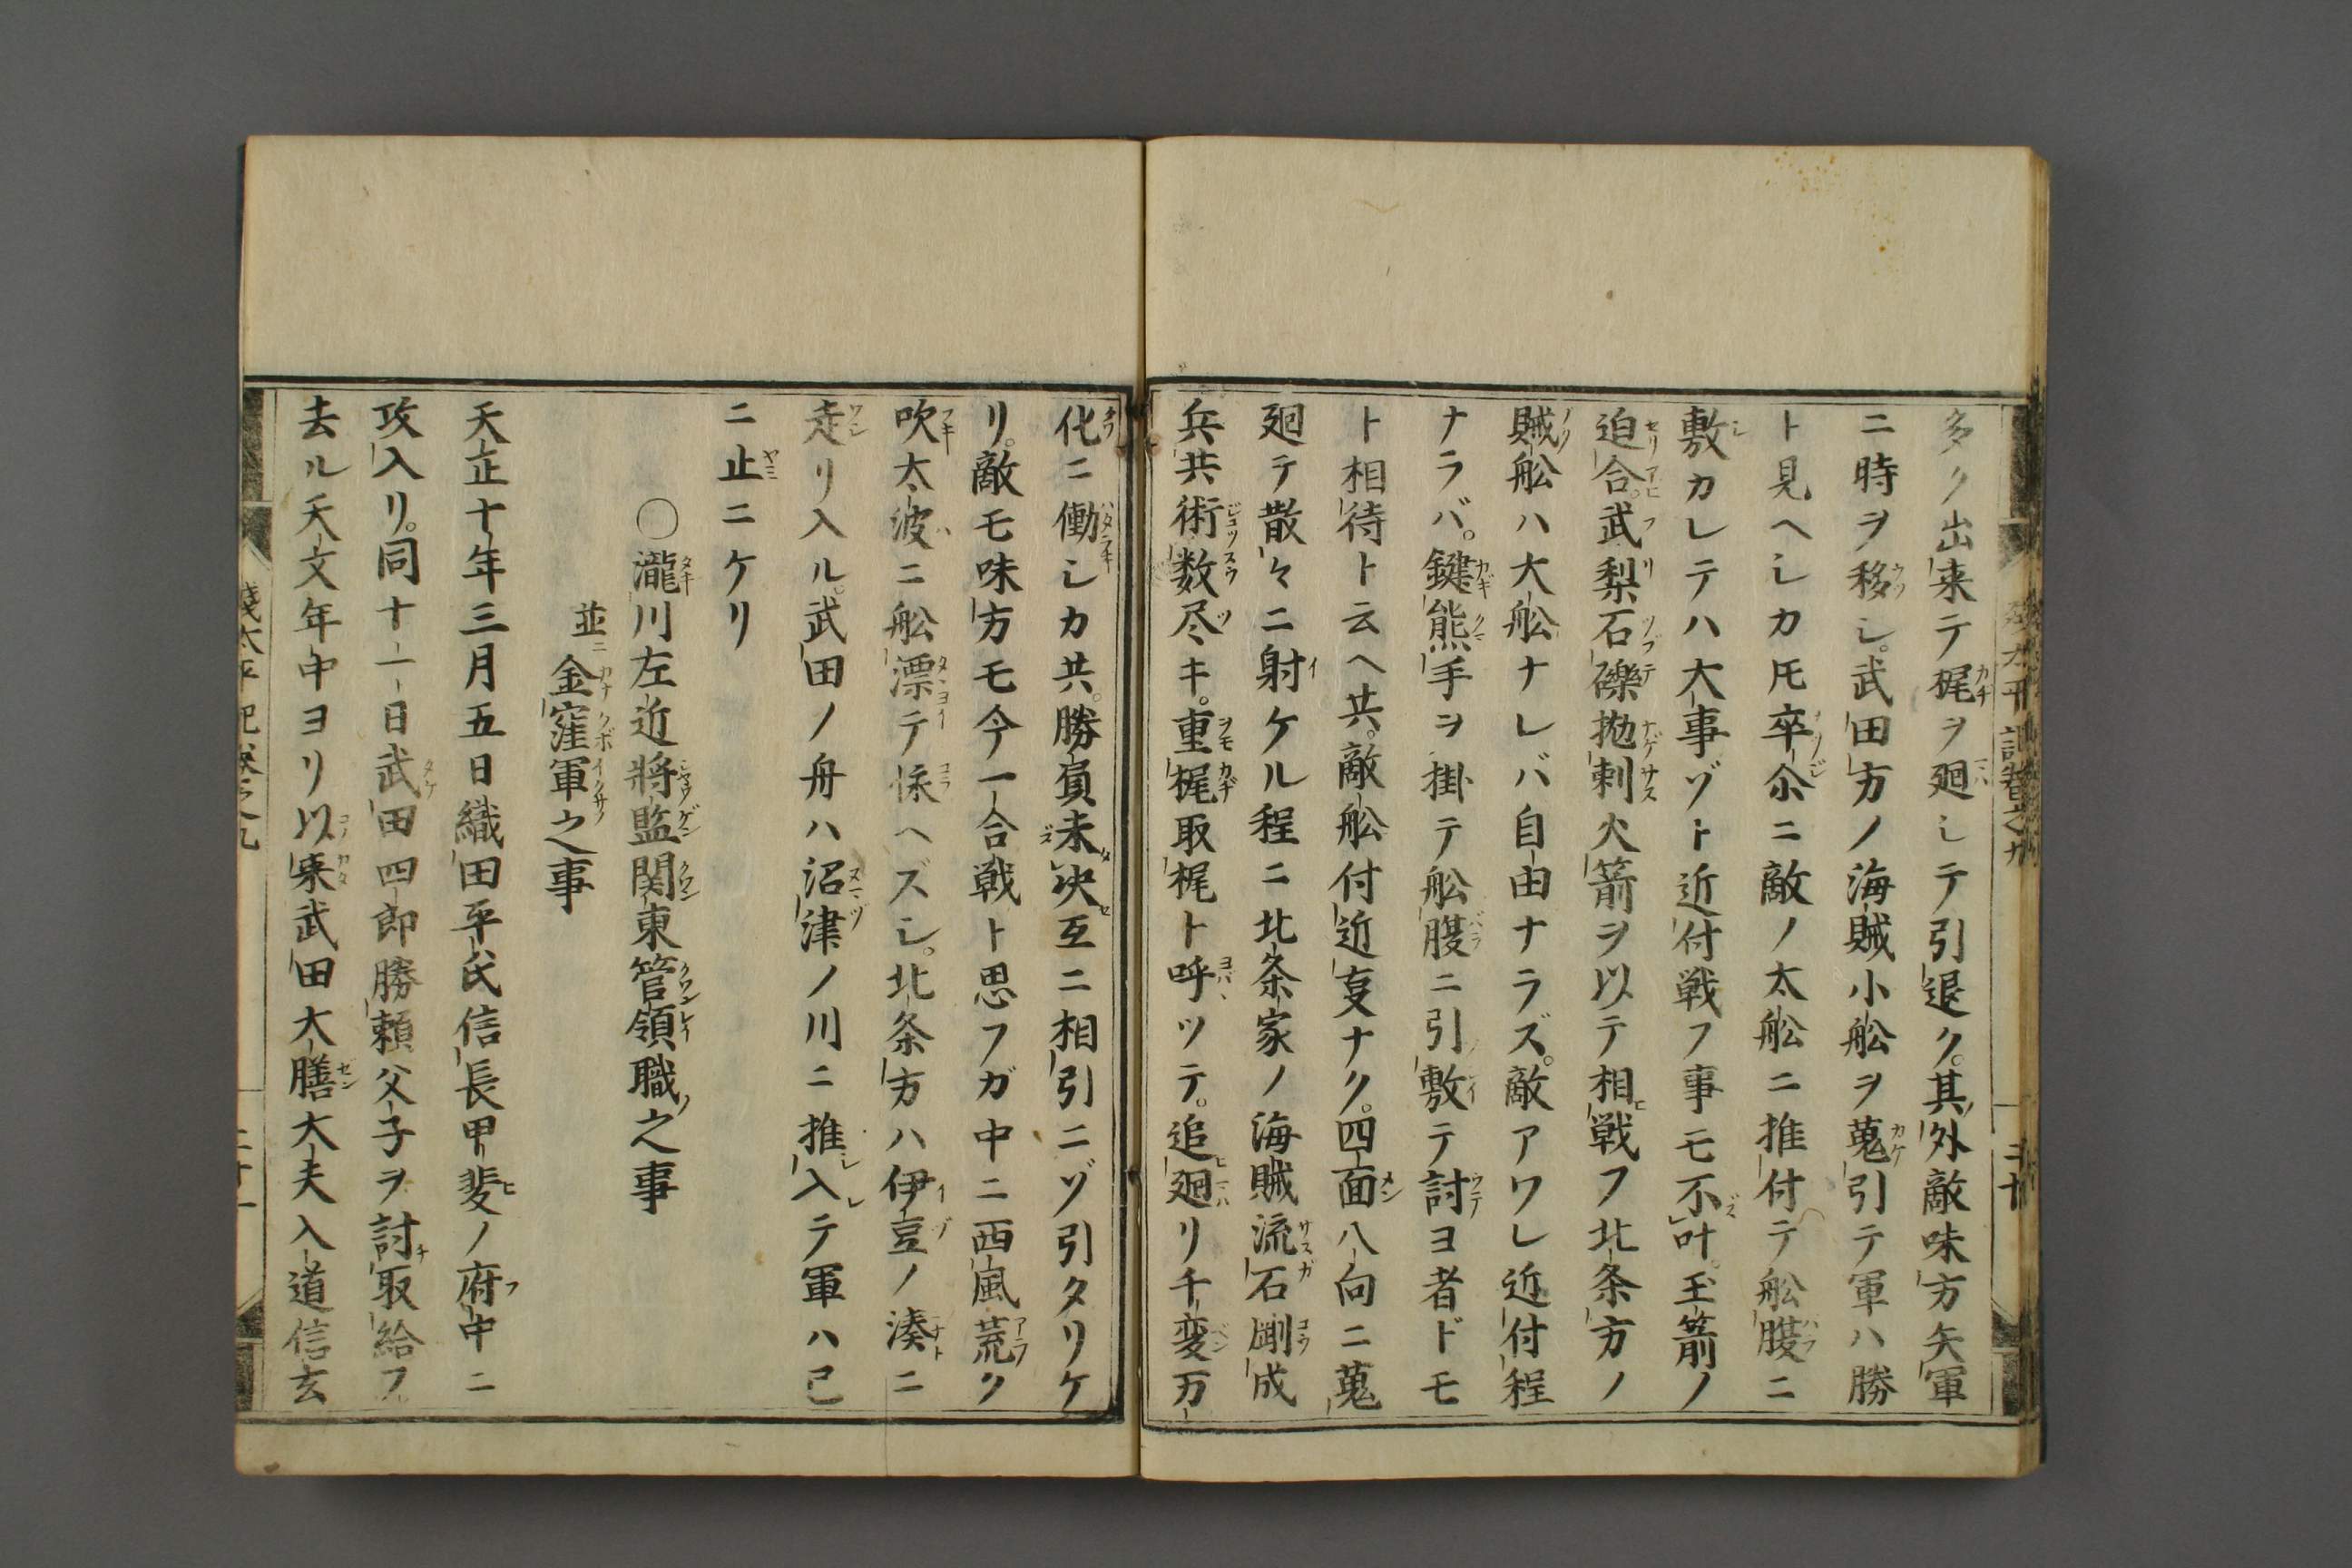 多ク出来テ梶ヲ廻シテ引退ク。其外敵味方矢軍
ニ時ヲ移シ。武田方ノ海賊小舩ヲ蒐引テ軍ハ勝
ト見ヘシカ𪜈卒尒ニ敵ノ太舩ニ推付テ舩腹ニ
敷カレテハ大事ゾト近付戦フ事モ不叶。玉箭ノ
迫合。武梨石礫抛剌火箭ヲ以テ相戦フ北条方ノ
賊舩ハ大舩ナレバ自由ナラズ。敵アワレ近付程
ナラバ。鍵熊手ヲ掛テ舩腹ニ引敷テ討ヨ者ドモ
ト相待ト云ヘ共。敵舩付近叓ナク。四面八向ニ蒐
廻テ散々ニ射ケル程ニ北条家ノ海賊流石剛成
兵共術数尽キ。重梶取梶ト呼ツテ。追廻リ千変万
化ニ働シカ共。勝負未决互ニ相引ニゾ引タリケ
リ。敵モ味方モ今一合戦ト思フガ中ニ西風荒ク
吹太波ニ舩漂テ怺ヘズシ。北条方ハ伊豆ノ湊ニ
走リ入ル。武田ノ舟ハ沼津ノ川ニ推入テ軍ハ已
ニ止ニケリ
〇瀧川左近將監関東管領職之事
並ニ金窪軍之事
天正十年三月五日織田平氏信長甲斐ノ府中ニ
攻入リ。同十一日武田四郎勝頼父子ヲ討取給フ
去ル天文年中ヨリ以来武田大膳大夫入道信玄